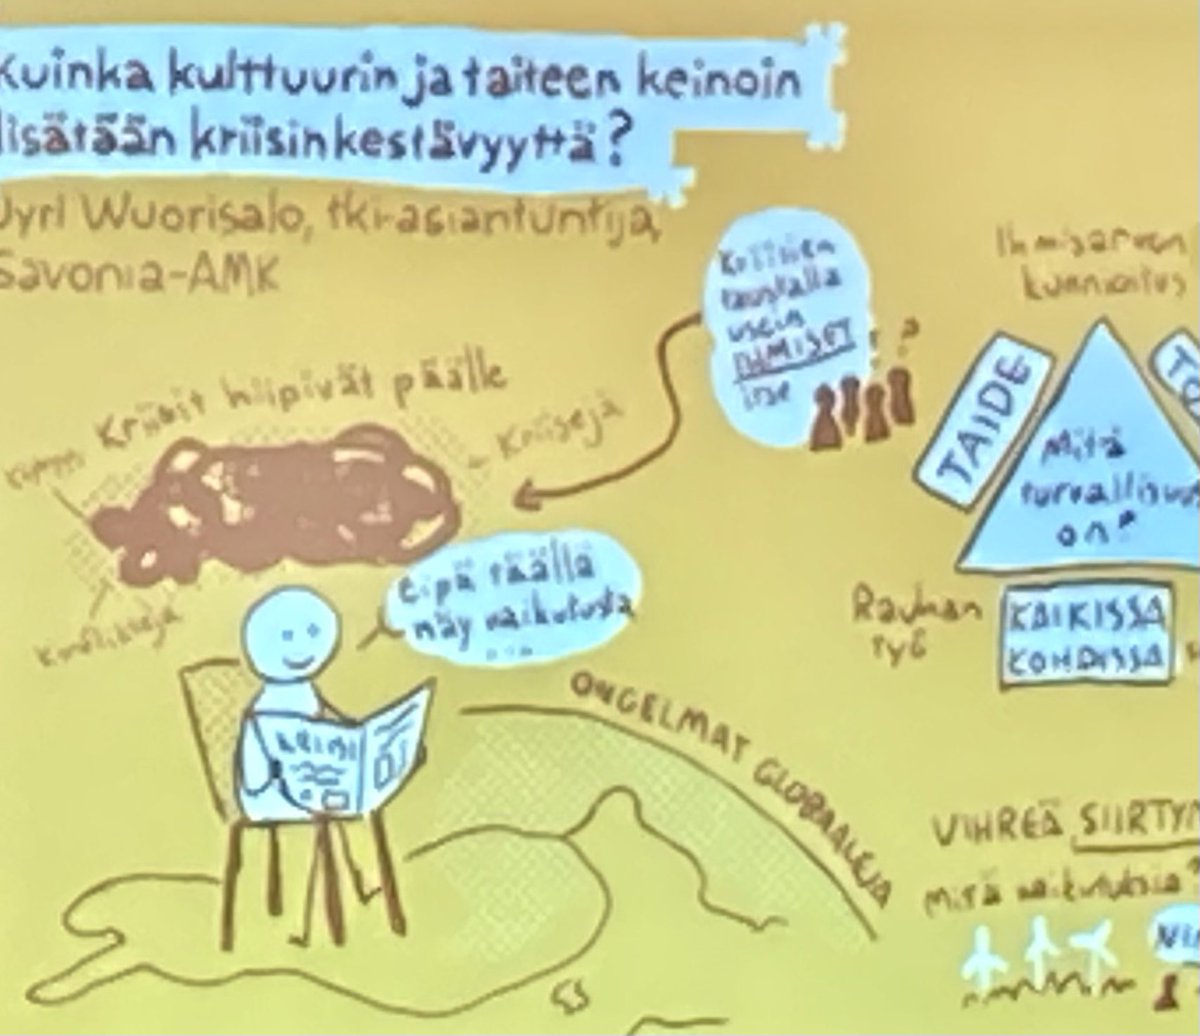 Kuinka kulttuurin ja taiteen keinoin
lisätään kriisinkestävyyttä?
Jyri Wuorisalo, tki-asiantuntija,
Savonia-AMK
Kriisien
taustalla
usein
IHMISET
itse
?
Kriisit hiipivät päälle
Kriisejä
Konflikteja
Eipä täällä
näy vaikutusta
...
KRIISI
ONGELMAT GLOBAALEJA
Ihmisarvon
kunnioitus
TAIDE
Mitä
turvallisuus
on?
Rauhan
työ
KAIKISSA
KOHDISSA
VIHREÄ SIIRTYM
mitä vaikutuksia?